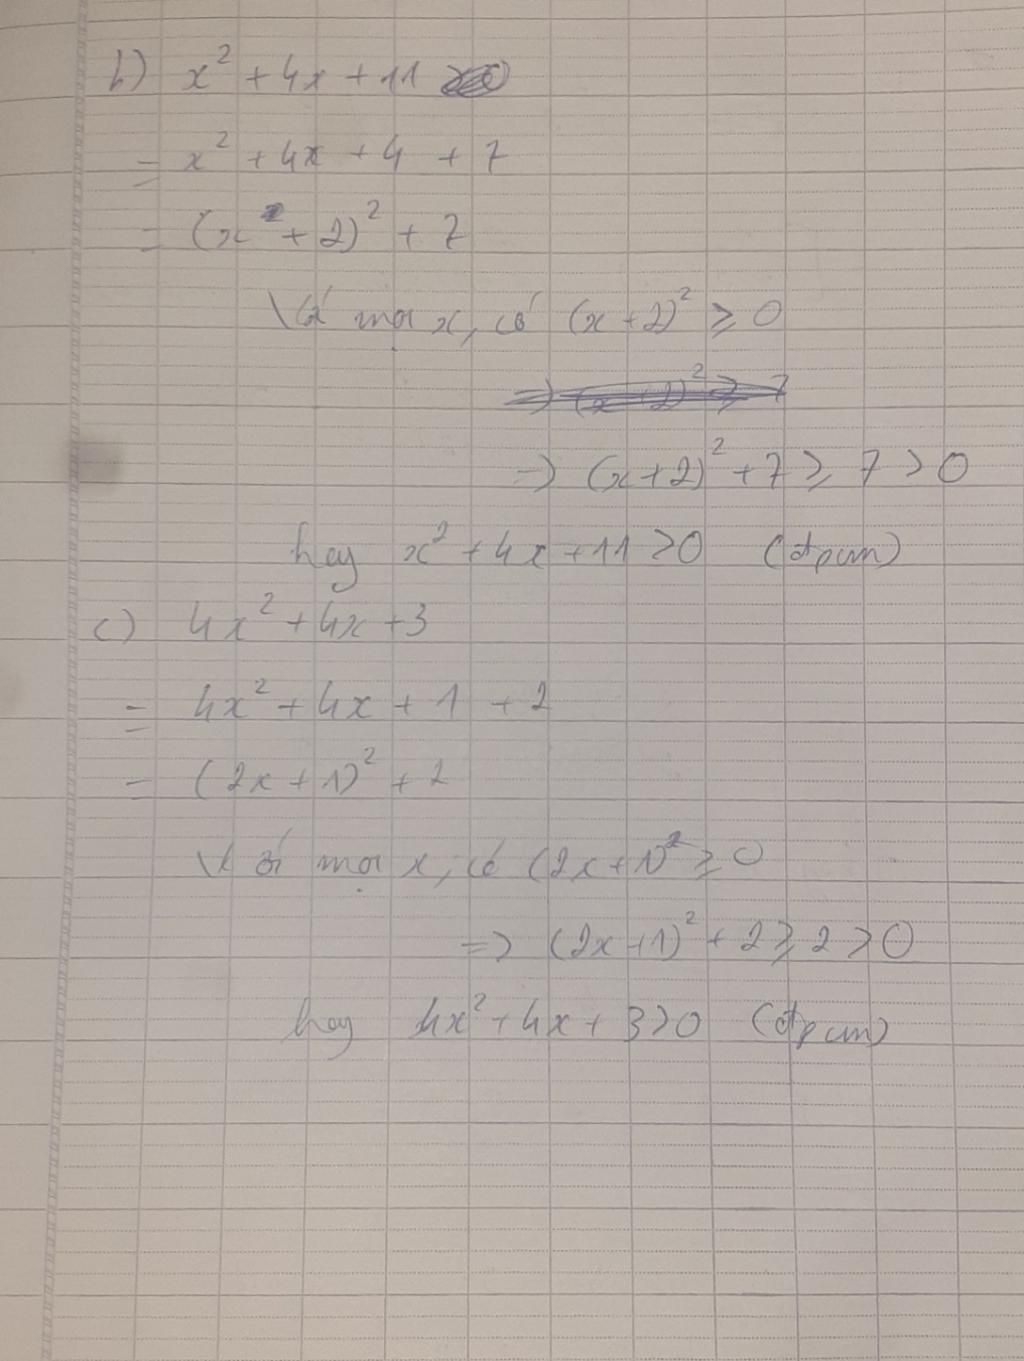 b) x² + 4x + 11
= x² + 4x + 4 + 7
= (x + 2)² + 7
Với mọi x, có (x + 2)² ≥ 0
=> (x + 2)² ≥ 7
=> (x + 2)² + 7 ≥ 7 > 0
hay x² + 4x + 11 > 0 (đpcm)
c) 4x² + 4x + 3
= 4x² + 4x + 1 + 2
= (2x + 1)² + 2
Với mọi x, có (2x + 1)² ≥ 0
=> (2x + 1)² + 2 ≥ 2 > 0
hay 4x² + 4x + 3 > 0 (đpcm)